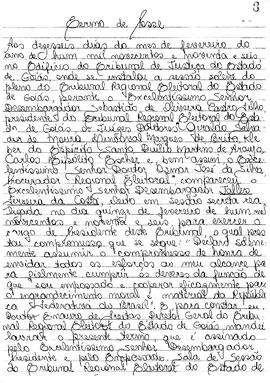 3
Termo de Posse
Aos dezesseis dias do mes de fevereiro do
ano de hum mil novecentos e noventa e seis
no Edifício do Tribunal de Justiça do Estado
de Goiás, onde se instalou a sessão solene do
pleno do Tribunal Regional Eleitoral do Estado
de Goiás, perante o Excelentíssimo Senhor
Desembargador Sebastião de Oliveira Castro Filho
presidente do Tribunal Regional Eleitoral do Esta
do de Goiás, os Juízes Doutores
de Moura, Marques de Brito,
do Espírito Santo, Martins de Araujo,
Carlos Hipólito Escher e, bem assim o Exce
lentíssimo Senhor Doutor José da Silva
Procurador Regional Eleitoral compareceu o
Excelentíssimo Senhor Desembargador
Pereira da Costa, eleito em sessão secreta rea
lizada no dia quinze de fevereiro de hum mil
novecentos e noventa e seis para exercer o
cargo de Presidente deste Tribunal, o qual pres
tou compromisso que se segue: "Declaro solene
mente assumir o compromisso de honra de
envidar todos os esforços ao meu alcance pa
ra fielmente cumprir os deveres da função de
que sou empossado e cooperar eficazmente para
o engrandecimento moral e material da República
Federativa do Brasil". E, para constar, eu,
Doutor de Freitas Diretor Geral do Tribu
nal Regional Eleitoral do Estado de Goiás mandei
lavrar o presente termo que é assinado
pelo Excelentíssimo Senhor Desembargador
Presidente e pelo Empossado. Sala de Sessão
do Tribunal Regional Eleitoral do Estado de